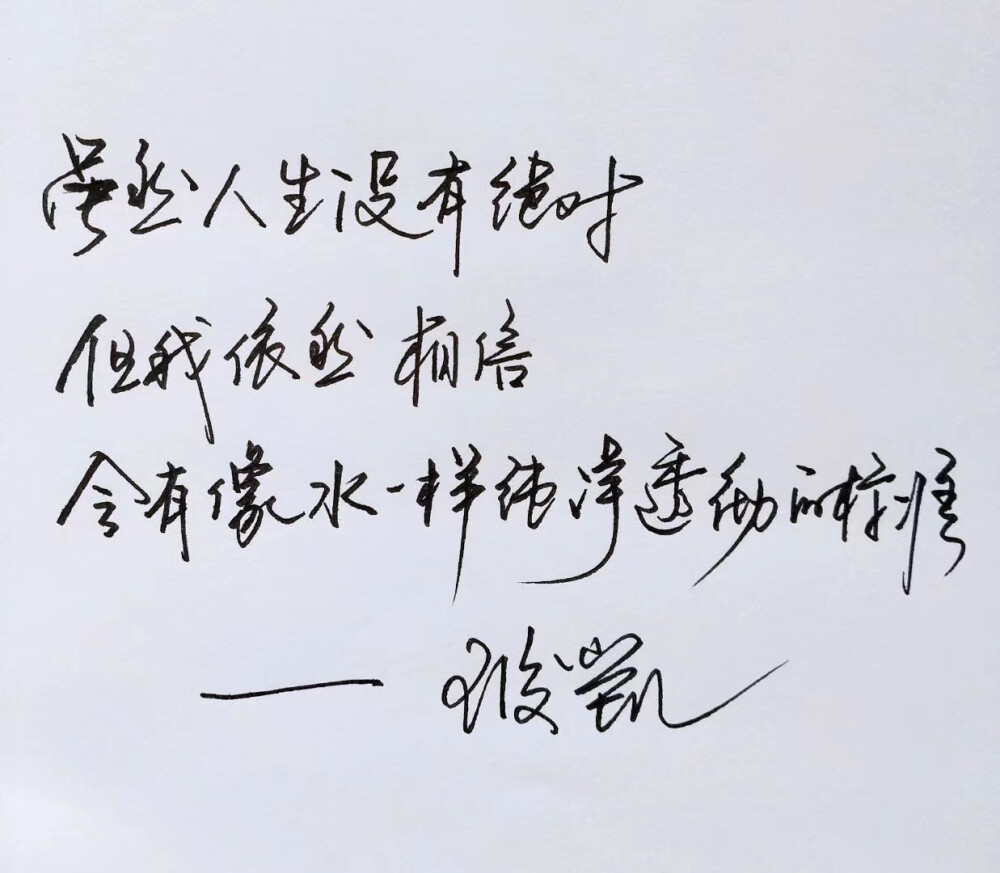 虽然人生没有绝对
但我依然相信
会有像水一样纯净透彻的标准
—— 王俊凯